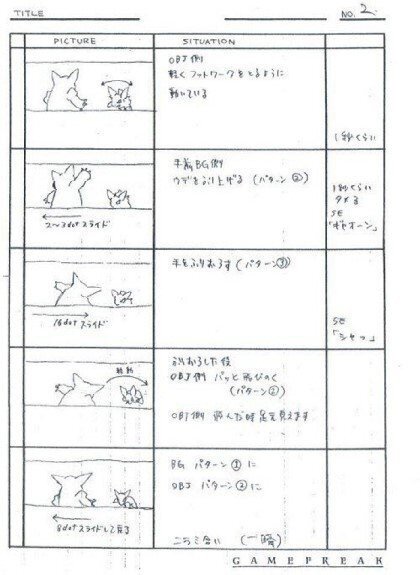 TITLE
NO. 2
PICTURE
SITUATION
OBJ側
軽くフットワークをとるように
動いている
1秒くらい
手前BG側
ウデをふり上げる (パターン②)
1秒くらい
タメる
SE
「ギャオーン」
2〜3dotスライド
手をふりおろす(パターン③)
16dotスライド
SE
「シャッ」
ふりおろした後
OBJ側 パッと飛びのく
(パターン②)
OBJ側 飛んだ時足も見えます
移動
BG パターン①に
OBJ パターン②に
8dotスライドして戻る
ニラミ合い (一瞬)
GAMEFREAK